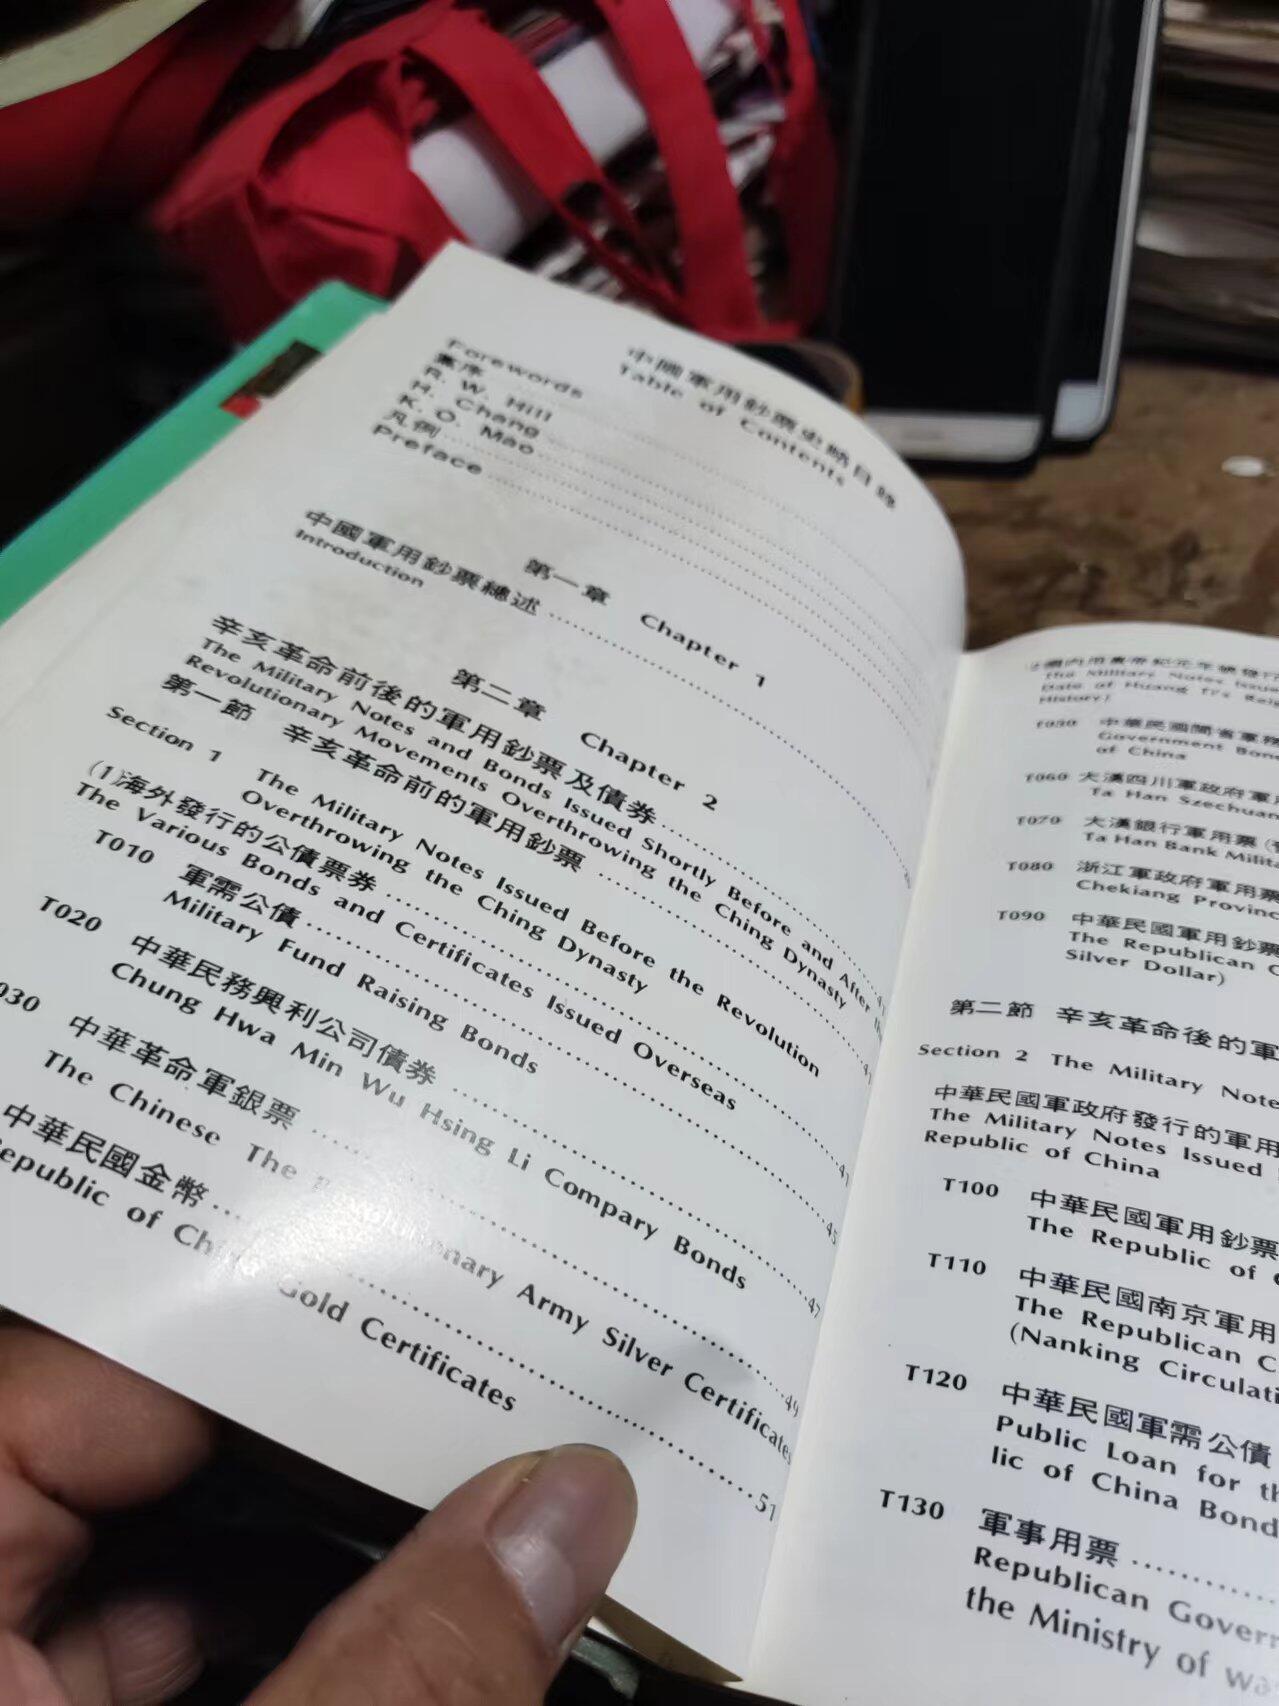 中國軍用鈔票史略目錄
Table of Contents
Forewords
W. Hill
H. Chang
K. O. Mao
凡例
Preface
第一章 Chapter 1
中國軍用鈔票總述
Introduction
第二章 Chapter 2
辛亥革命前後的軍用鈔票及債券
The Military Notes and Bonds Issued Shortly Before and After the
Revolutionary Movements Overthrowing the Ching Dynasty
第一節 辛亥革命前的軍用鈔票
Section 1 The Military Notes Issued Before the Revolution
Overthrowing the Ching Dynasty
(1)海外發行的公債票券 41
The Various Bonds and Certificates Issued Overseas
T010 軍需公債 45
Military Fund Raising Bonds
T020 中華民務興利公司債券 47
Chung Hwa Min Wu Hsing Li Company Bonds
030 中華革命軍銀票 49
The Chinese The Army Silver Certificates
中華民國金幣 51
Republic of Gold Certificates
The Military Notes
Date of Huang Ti's
History)
T050
Government
of China
T060 大漢四川軍政府軍
Ta Han Szechuan
T070 大漢銀行軍用票
Ta Han Bank
T080 浙江軍政府軍用票
Chekiang
T090 中華民國軍用鈔票
The Republican
Silver Dollar)
第二節 辛亥革命後的軍
Section 2 The Military Note
中華民國軍政府發行的軍用
The Military Notes Issued
Republic of China
T100 中華民國軍用鈔票
The Republic of
T110 中華民國南京軍用
The Republican C
(Nanking Circulati
T120 中華民國軍需公債
Public Loan for th
lic of China Bond
T130 軍事用票
Republican Govern
the Ministry of wa